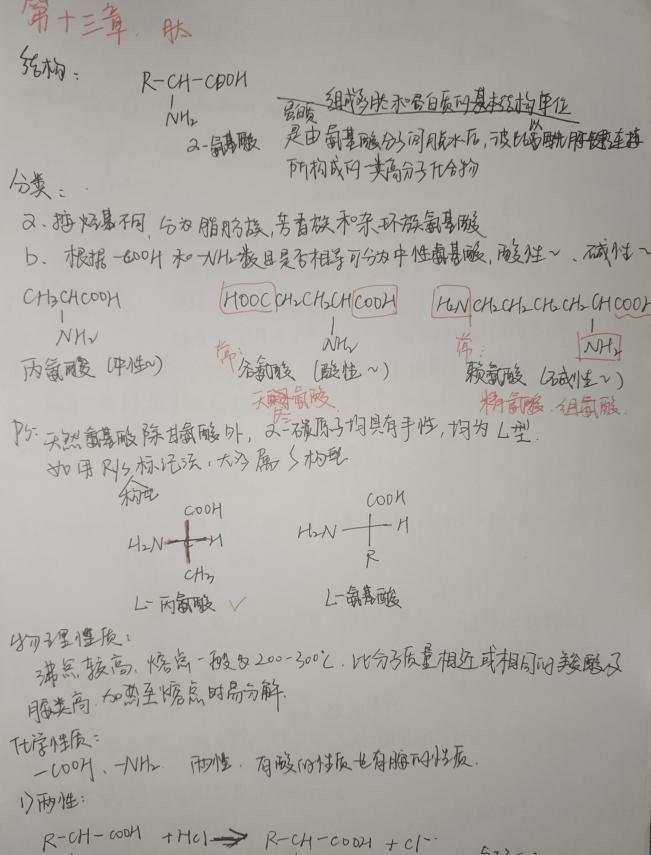 第十三章. 肽
结构:
R-CH-COOH
NH₂
α-氨基酸
组成多肽和蛋白质的基本结构单位
蛋白质
是由氨基酸分子间脱水后,彼此以酰胺键连接
所构成的一类高分子化合物
分类:
a. 按烃基不同,分为脂肪族,芳香族和杂环族氨基酸
b. 根据-COOH和-NH₂数目是否相等可分为中性氨基酸,酸性~、碱性~
CH₃CHCOOH HOOCCH₂CH₂CHCOOH H₂NCH₂CH₂CH₂CH₂CHCOOH
NH₂ NH₂ NH₂
丙氨酸 (中性~) 常: 谷氨酸 (酸性~) 常: 赖氨酸 (碱性~)
天 氨酸 精氨酸. 组氨酸.
PS: 天然氨基酸除甘氨酸外, α-碳原子均具有手性,均为L型.
如用R/S标记法,大多属S构型
构型
COOH COOH
H₂N C H H₂N H
CH₃ R
L-丙氨酸 ✓ L-氨基酸
物理性质:
沸点较高,熔点一般为200-300℃,比分子质量相近或相同的羧酸及
胺类高,加热至熔点时易分解.
化学性质:
-COOH、-NH₂ 两性. 有酸的性质也有胺的性质.
1)两性:
R-CH-COOH +HCl→ R-CH-COOH + Cl⁻